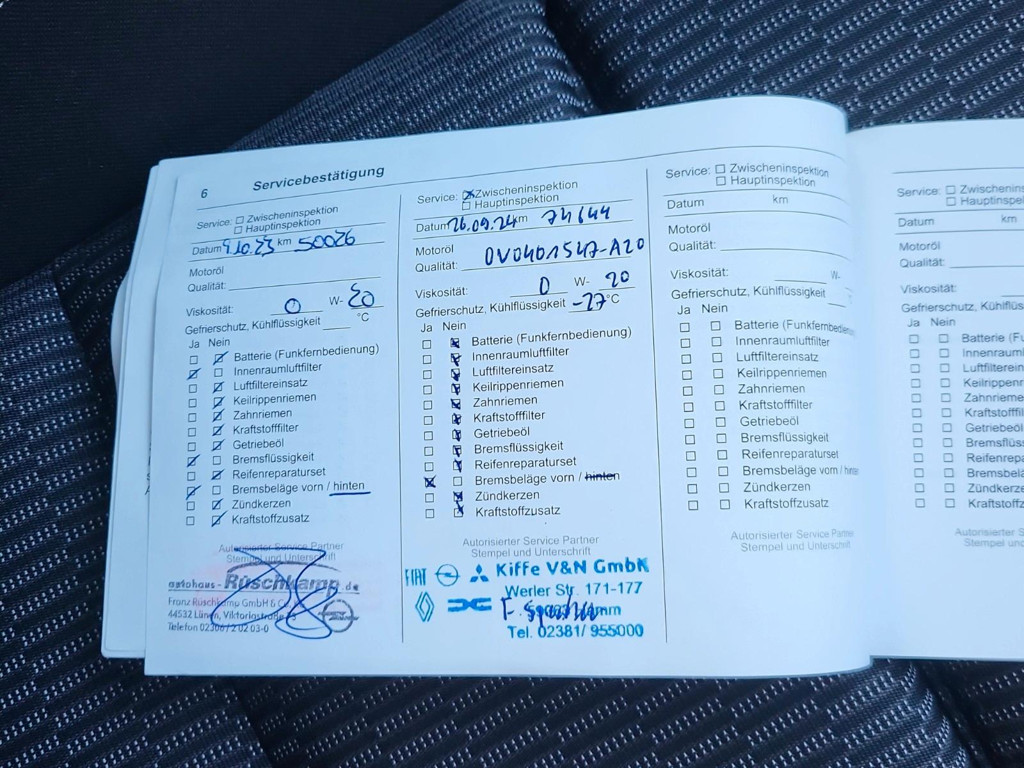 6 Servicebestätigung
Service: ☐ Zwischeninspektion
☐ Hauptinspektion
Datum 9.10.23 km 50026
Motoröl
Qualität:
Viskosität: 0 W- 20
Gefrierschutz, Kühlflüssigkeit °C
Ja Nein
☐ ☑ Batterie (Funkfernbedienung)
☑ ☐ Innenraumluftfilter
☐ ☑ Luftfiltereinsatz
☐ ☑ Keilrippenriemen
☐ ☑ Zahnriemen
☐ ☑ Kraftstofffilter
☐ ☑ Getriebeöl
☑ ☐ Bremsflüssigkeit
☐ ☑ Reifenreparaturset
☑ ☐ Bremsbeläge vorn / hinten
☐ ☑ Zündkerzen
☐ ☑ Kraftstoffzusatz
Autorisierter Service Partner
Stempel und Unterschrift
autohaus-Rüschkamp.de
Franz Rüschkamp GmbH & Co.
44532 Lünen, Viktoriastraße
Telefon 02306 / 2 02 03-0
Service: ☒ Zwischeninspektion
☐ Hauptinspektion
Datum 26.09.24 km 74644
Motoröl
Qualität: OV0401547-A20
Viskosität: 0 W- 20
Gefrierschutz, Kühlflüssigkeit -27 °C
Ja Nein
☐ ☒ Batterie (Funkfernbedienung)
☐ ☒ Innenraumluftfilter
☐ ☒ Luftfiltereinsatz
☐ ☒ Keilrippenriemen
☐ ☒ Zahnriemen
☐ ☒ Kraftstofffilter
☐ ☒ Getriebeöl
☐ ☒ Bremsflüssigkeit
☐ ☒ Reifenreparaturset
☒ ☐ Bremsbeläge vorn / hinten
☐ ☒ Zündkerzen
☐ ☒ Kraftstoffzusatz
Autorisierter Service Partner
Stempel und Unterschrift
FIAT Kiffe V&N GmbH
Werler Str. 171-177
Hamm
Tel. 02381/ 955000
Service: ☐ Zwischeninspektion
☐ Hauptinspektion
Datum km
Motoröl
Qualität:
Viskosität: W-
Gefrierschutz, Kühlflüssigkeit
Ja Nein
☐ ☐ Batterie (Funkfernbedie
☐ ☐ Innenraumluftfilter
☐ ☐ Luftfiltereinsatz
☐ ☐ Keilrippenriemen
☐ ☐ Zahnriemen
☐ ☐ Kraftstofffilter
☐ ☐ Getriebeöl
☐ ☐ Bremsflüssigkeit
☐ ☐ Reifenreparaturset
☐ ☐ Bremsbeläge vorn / hinten
☐ ☐ Zündkerzen
☐ ☐ Kraftstoffzusatz
Autorisierter Service Partner
Stempel und Unterschrift
Service: ☐ Zwischenins
☐ Hauptinspe
Datum km
Motoröl
Qualität:
Viskosität:
Gefrierschutz, Kühlflüss
Ja Nein
☐ ☐ Batterie (Fu
☐ ☐ Innenraumlu
☐ ☐ Luftfilterein
☐ ☐ Keilrippenri
☐ ☐ Zahnriemen
☐ ☐ Kraftstofff
☐ ☐ Getriebeöl
☐ ☐ Bremsflüss
☐ ☐ Reifenrepa
☐ ☐ Bremsbelä
☐ ☐ Zündkerze
☐ ☐ Kraftstoffz
Autorisierter Se
Stempel und